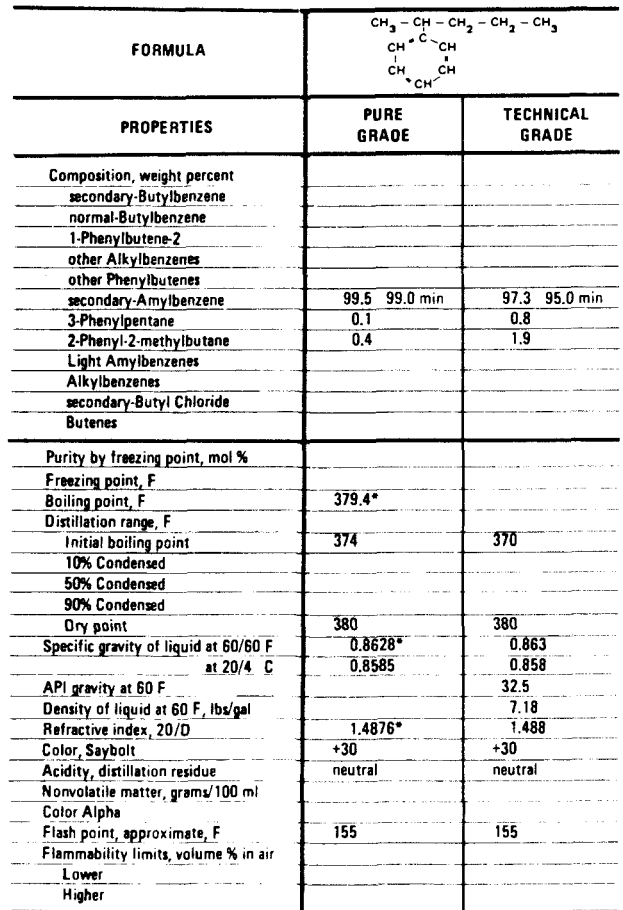 FORMULA
CH3 – CH – CH2 – CH2 – CH3
C
CH CH
CH CH
CH
PROPERTIES PURE GRADE TECHNICAL GRADE
Composition, weight percent
secondary-Butylbenzene
normal-Butylbenzene
1-Phenylbutene-2
other Alkylbenzenes
other Phenylbutenes
secondary-Amylbenzene 99.5 99.0 min 97.3 95.0 min
3-Phenylpentane 0.1 0.8
2-Phenyl-2-methylbutane 0.4 1.9
Light Amylbenzenes
Alkylbenzenes
secondary-Butyl Chloride
Butenes
Purity by freezing point, mol %
Freezing point, F
Boiling point, F 379.4*
Distillation range, F
Initial boiling point 374 370
10% Condensed
50% Condensed
90% Condensed
Dry point 380 380
Specific gravity of liquid at 60/60 F 0.8628* 0.863
at 20/4 C 0.8585 0.858
API gravity at 60 F 32.5
Density of liquid at 60 F, lbs/gal 7.18
Refractive index, 20/D 1.4876* 1.488
Color, Saybolt +30 +30
Acidity, distillation residue neutral neutral
Nonvolatile matter, grams/100 ml
Color Alpha
Flash point, approximate, F 155 155
Flammability limits, volume % in air
Lower
Higher